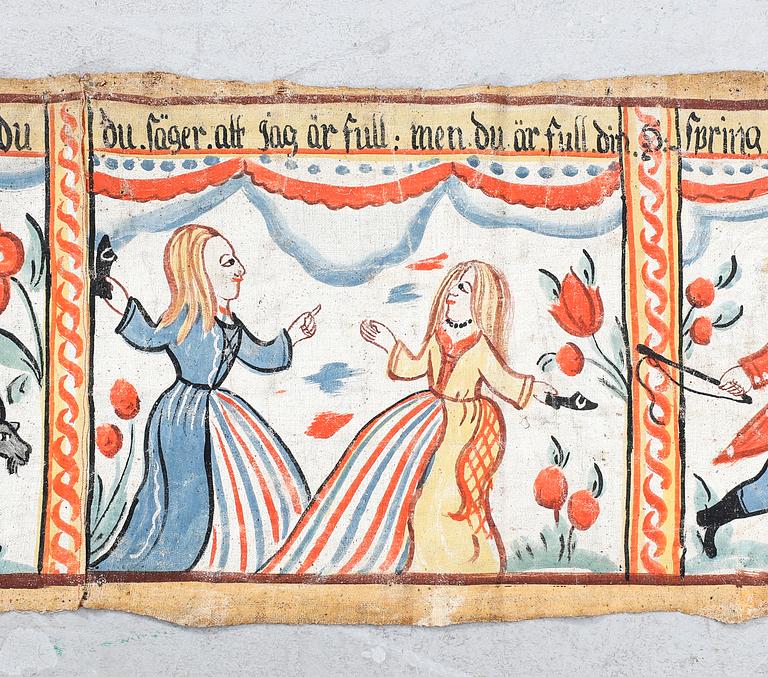 du du. säger. att jag är full: men. du är. full din. spring